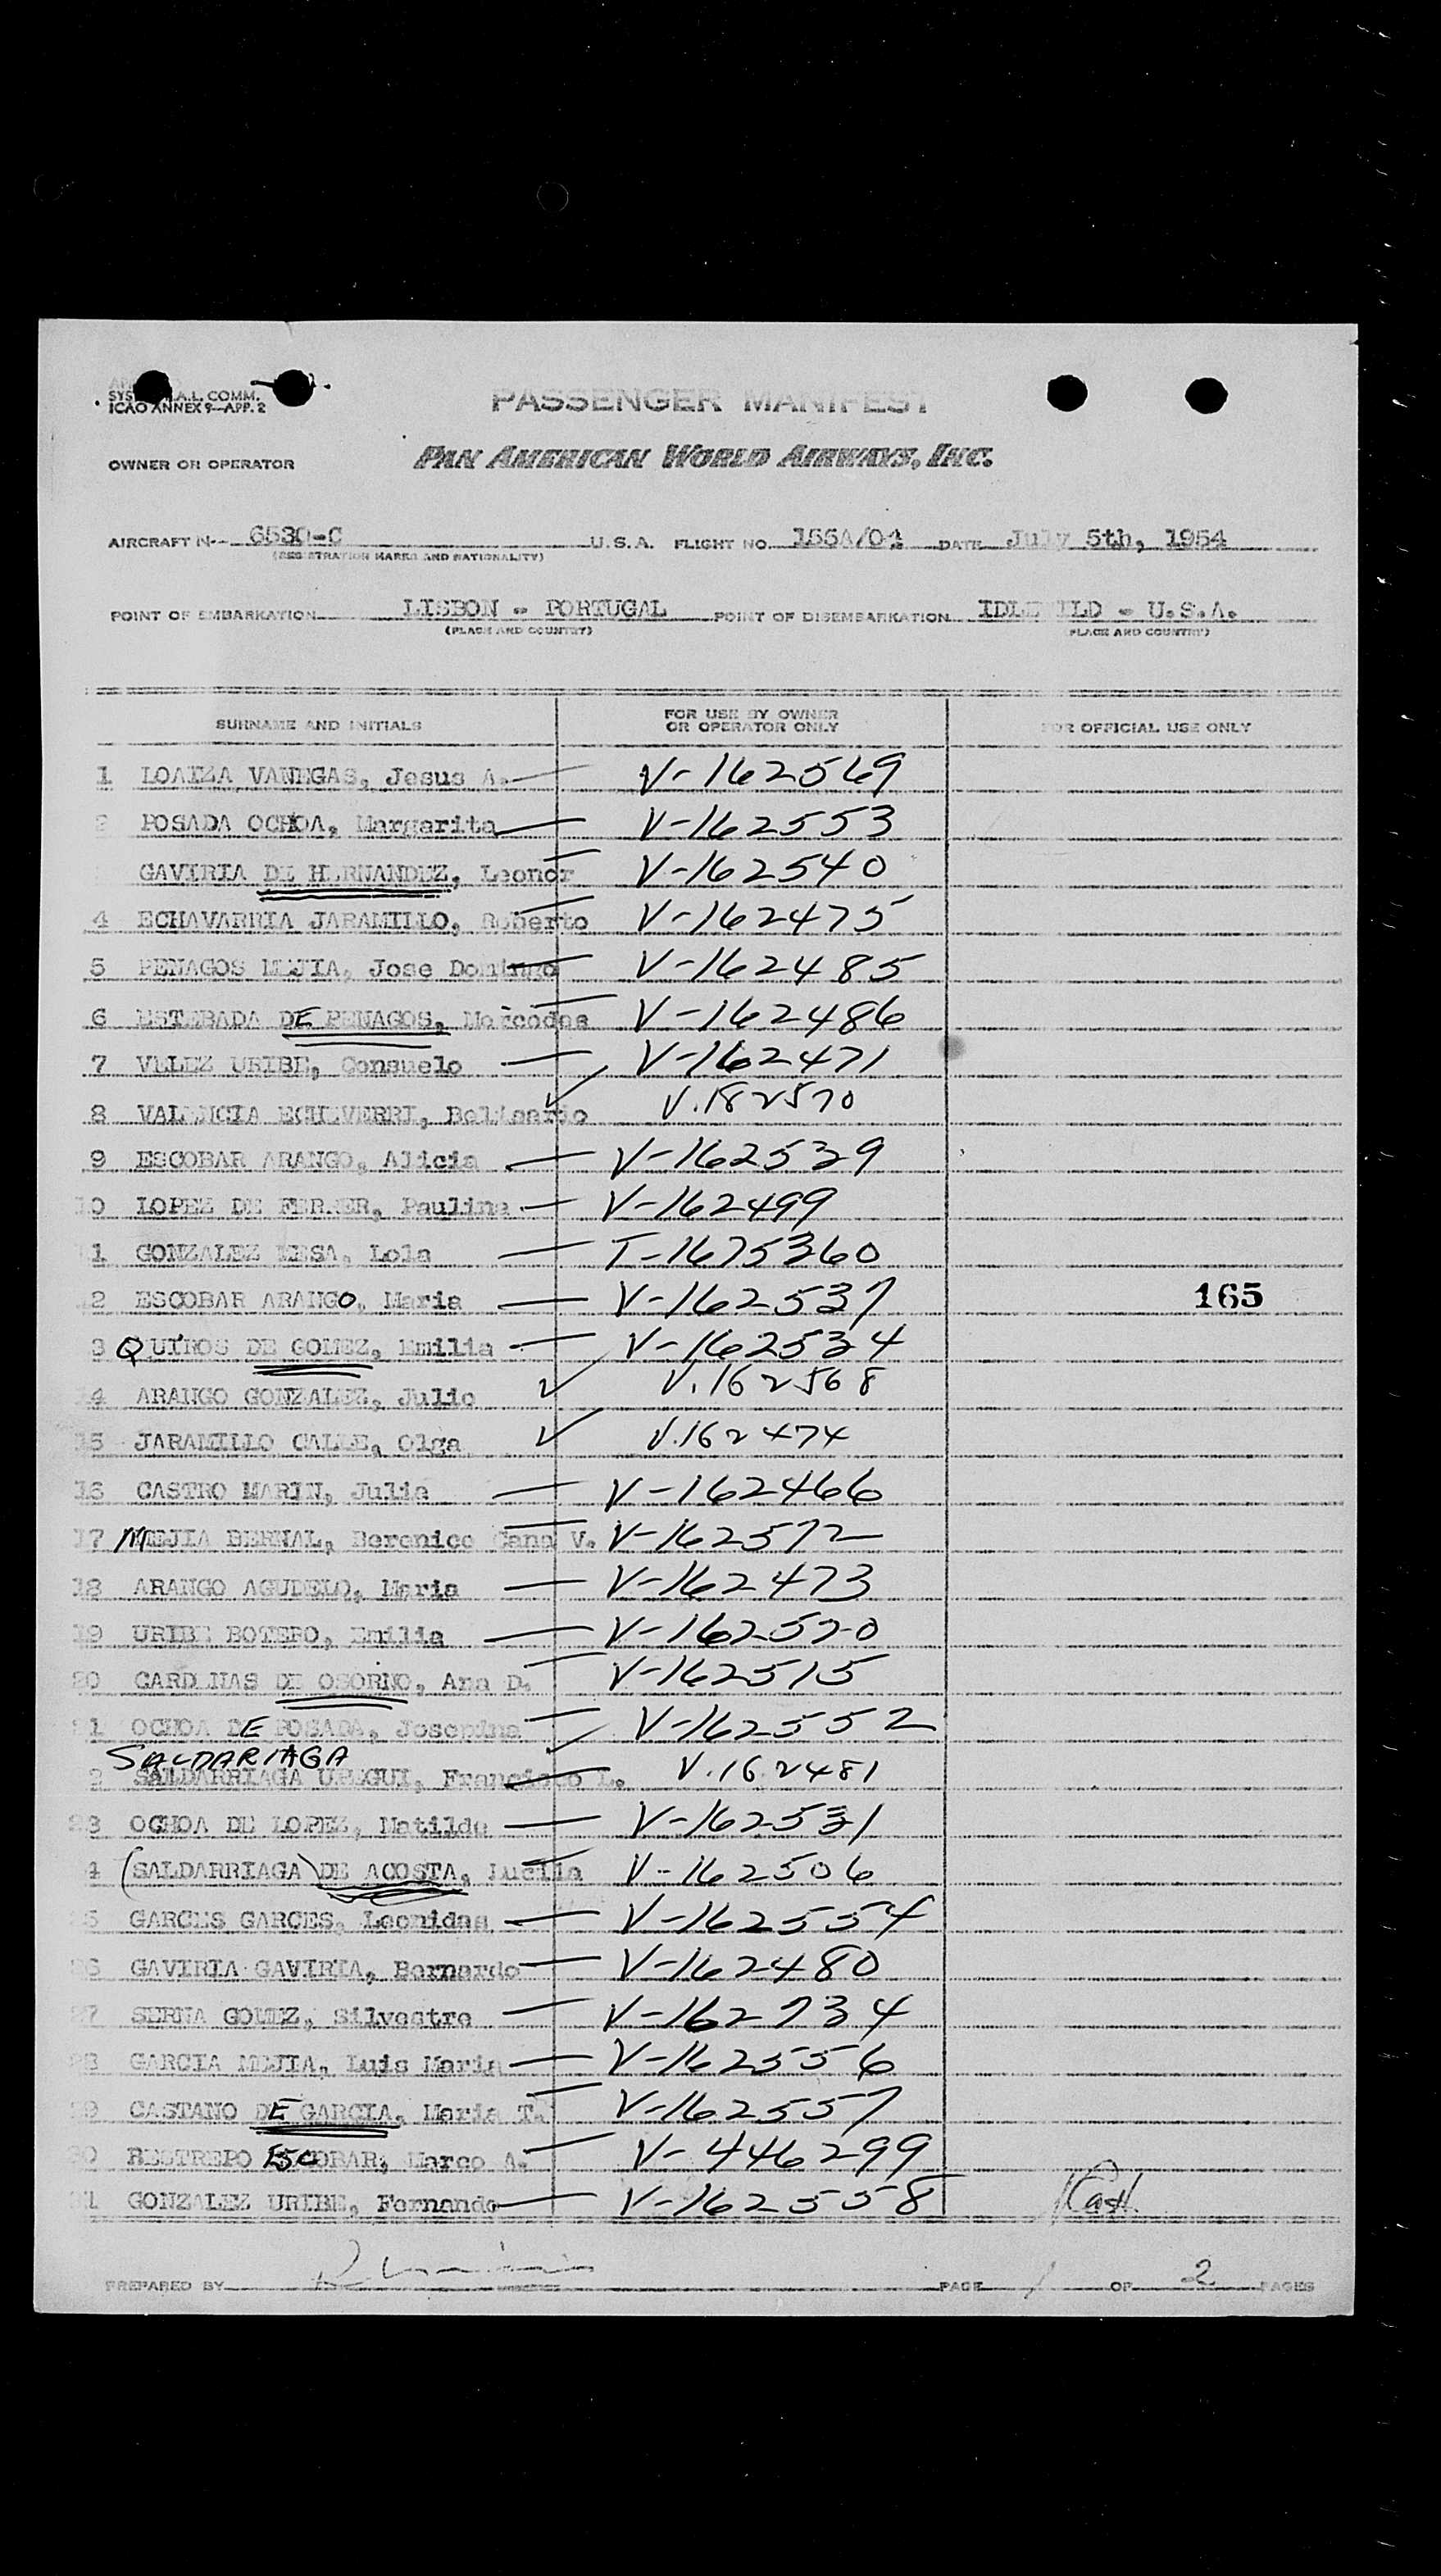 SYS A.L. COMM.
ICAO ANNEX 9—APP. 2
PASSENGER MANIFEST
OWNER OR OPERATOR PAN AMERICAN WORLD AIRWAYS, INC.
AIRCRAFT N-- 6530-C U.S.A. FLIGHT NO. 155A/04 DATE July 5th, 1954
(REGISTRATION MARKS AND NATIONALITY)
POINT OF EMBARKATION LISBON - PORTUGAL POINT OF DISEMBARKATION IDLEWILD - U.S.A.
(PLACE AND COUNTRY) PLACE AND COUNTRY)
SURNAME AND INITIALS FOR USE BY OWNER OR OPERATOR ONLY FOR OFFICIAL USE ONLY
1 LOAIZA VANEGAS, Jesus A. V-162569
2 POSADA OCHOA, Margarita V-162553
GAVIRIA DE HERNANDEZ, Leonor V-162540
4 ECHAVARRIA JARAMILLO, Roberto V-162475
5 PENAGOS MEJIA, Jose Domingo V-162485
6 ESTEBADA DE PENAGOS, Mercedes V-162486
7 VELEZ URIBE, Consuelo V-162471
8 VALENCIA ECHEVERRI, Belisario V.182570
9 ESCOBAR ARANGO, Alicia V-162539
10 LOPEZ DE FERRER, Paulina V-162499
1 GONZALEZ MESA, Lola T-1675360
12 ESCOBAR ARANGO, Maria V-162537 165
3 QUIROS DE GOMEZ, Emilia V-162534
4 ARANGO GONZALEZ, Julio V.162568
15 JARAMILLO CALLE, Olga V.162474
16 CASTRO MARIN, Julia V-162466
17 MEJIA BERNAL, Berenice Cano V. V-162572
18 ARANGO AGUDELO, Maria V-162473
19 URIBE BOTERO, Emilia V-162520
20 CARDENAS DE OSORNO, Ana D. V-162515
21 OCHOA DE POSADA, Josefina V-162552
SALDARIAGA
2 SALDARRIAGA UREGUI, Francisco L. V.162481
23 OCHOA DE LOPEZ, Matilde V-162531
4 (SALDARRIAGA) DE ACOSTA, Lucila V-162506
25 GARCES GARCES, Leonidas V-162554
26 GAVIRIA GAVIRIA, Bernardo V-162480
27 SERNA GOMEZ, Silvestre V-162734
28 GARCIA MEJIA, Luis Maria V-162556
29 CASTANO DE GARCIA, Maria T. V-162557
30 RESTREPO ESCOBAR, Marco A. V-446299
31 GONZALEZ URIBE, Fernando V-162558
PREPARED BY PAGE 1 OF 2 PAGES